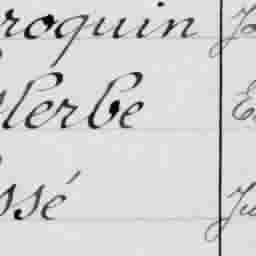 roquin
lerbe
ssé